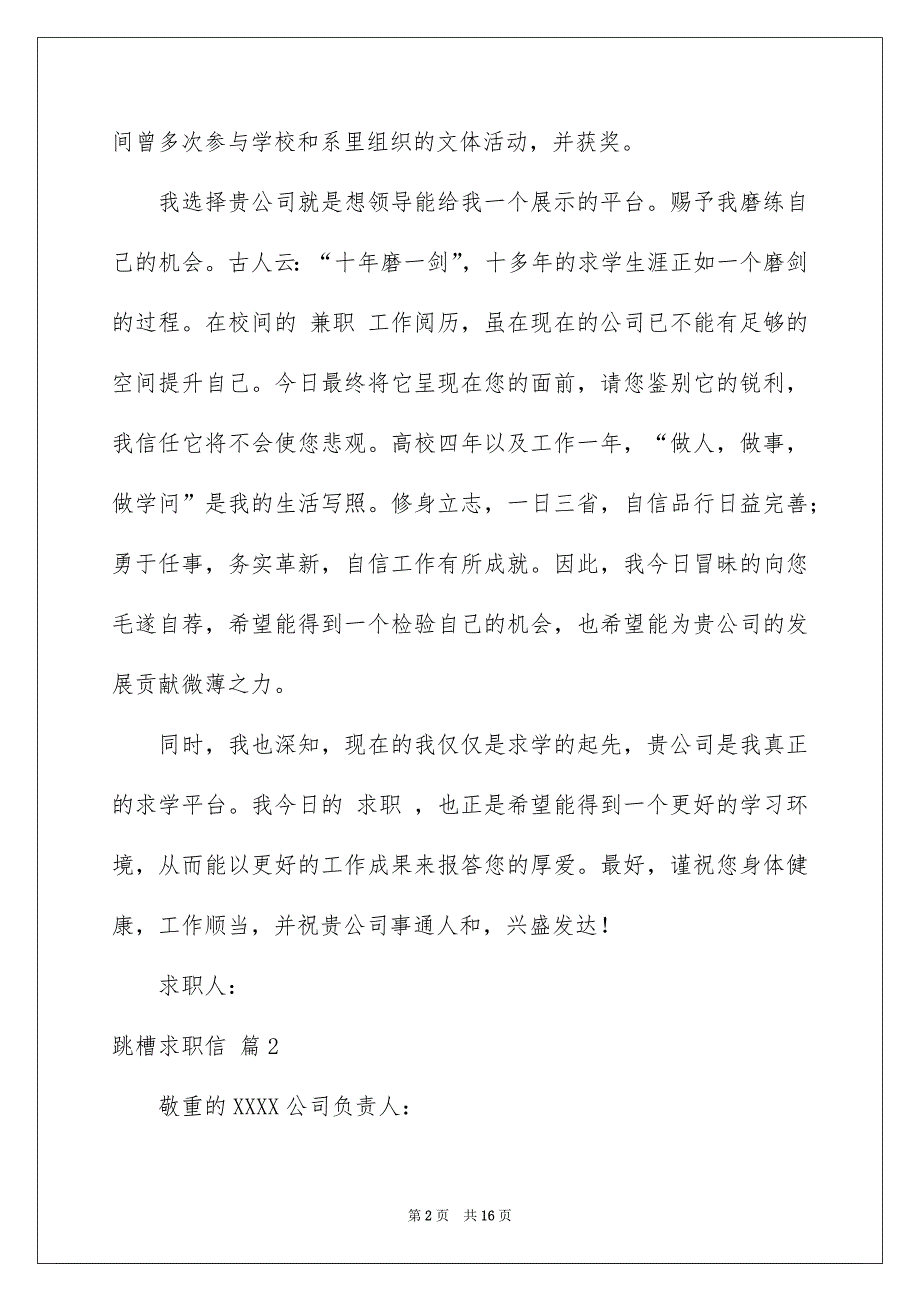 间曾多次参与学校和系里组织的文体活动，并获奖。
我选择贵公司就是想领导能给我一个展示的平台。赐予我磨练自
己的机会。古人云：“十年磨一剑”，十多年的求学生涯正如一个磨剑
的过程。在校间的 兼职 工作阅历，虽在现在的公司已不能有足够的
空间提升自己。今日最终将它呈现在您的面前，请您鉴别它的锐利，
我信任它将不会使您悲观。高校四年以及工作一年，“做人，做事，
做学问”是我的生活写照。修身立志，一日三省，自信品行日益完善；
勇于任事，务实革新，自信工作有所成就。因此，我今日冒昧的向您
毛遂自荐，希望能得到一个检验自己的机会，也希望能为贵公司的发
展贡献微薄之力。
同时，我也深知，现在的我仅仅是求学的起先，贵公司是我真正
的求学平台。我今日的 求职 ，也正是希望能得到一个更好的学习环
境，从而能以更好的工作成果来报答您的厚爱。最好，谨祝您身体健
康，工作顺当，并祝贵公司事通人和，兴盛发达！
求职人：
跳槽求职信 篇2
敬重的XXXX公司负责人：
第 2 页 共 16 页